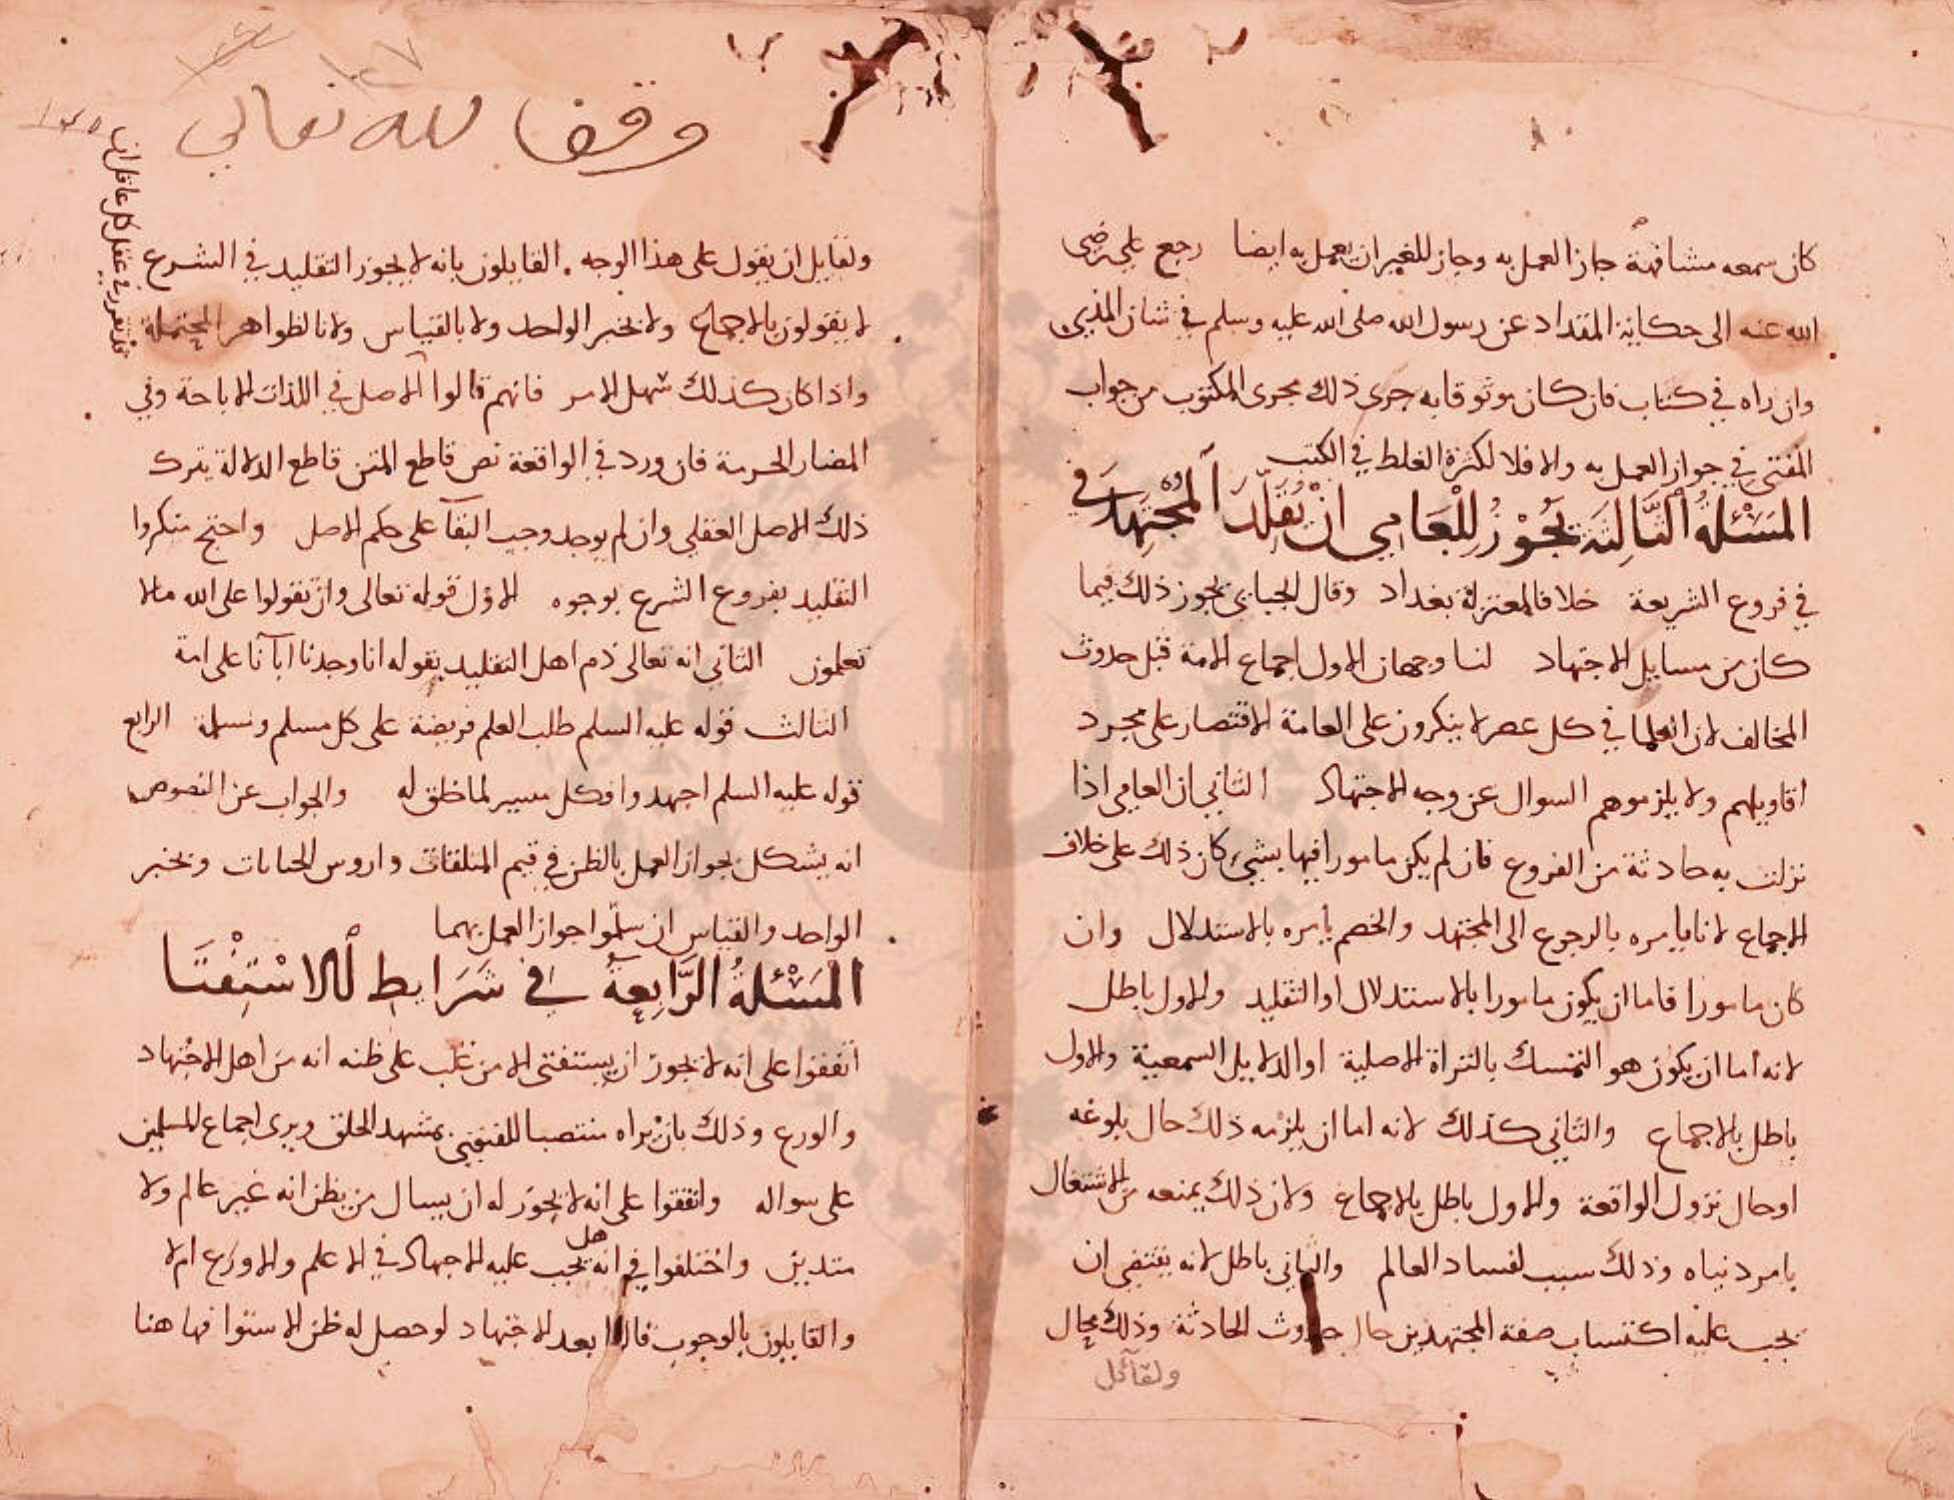 كان سمعه مشافهة جاز العمل به وجاز للغير ان يعمل به ايضا رجع علي رضى
الله عنه الى حكاية المقداد عن رسول الله صلى الله عليه وسلم في شان المذي
وان راه في كتاب فان كان موثوقا به جرى ذلك مجرى المكتوب من جواب
المفتي في جواز العمل به والا فلا لكثرة الغلط في الكتب
المسئلة الثالثة يجوز للعامي ان يقلد المجتهد في
في فروع الشريعة خلافا لمعتزلة بغداد وقال الجبائي يجوز ذلك فيما
كان من مسايل الاجتهاد لنا وجهان الاول اجماع الامة قبل حدوث
المخالف لان العلما في كل عصر لا ينكرون على العامة الاقتصار على مجرد
اقاويلهم ولا يلزموهم السوال عن وجه الاجتهاد الثاني ان العامي اذا
نزلت به حادثة من الفروع فان لم يكن مامورا فيها بشيء كان ذلك على خلاف
الاجماع لانا نامره بالرجوع الى المجتهد والخصم يأمره بالاستدلال وان
كان مامورا فاما ان يكون مامورا بالاستدلال او التقليد والاول باطل
لانه اما ان يكون هو التمسك بالبراة الاصلية او الدلايل السمعية والاول
باطل بالاجماع والثاني كذلك لانه اما ان يلزمه ذلك حال بلوغه
او حال نزول الواقعة والاول باطل بالاجماع ولان ذلك يمنعه من الاشتغال
بامر دنياه وذلك سبب لفساد العالم والثاني باطل لانه يقتضي ان
يجب عليه اكتساب صفة المجتهدين حال حدوث الحادثة وذلك محال
ولقآئل
وقف لله تعالى
١٢٧
١٢٥
ولقايل ان يقول على هذا الوجه القايلون بانه لا يجوز التقليد في الشرع
لا يقولون بالاجماع ولا بخبر الواحد ولا بالقياس ولا بالظواهر المحتملة
واذا كان كذلك سهل الامر فانهم قالوا الاصل في اللذات الاباحة وفي
المضار الحرمة فان ورد في الواقعة نص قاطع المتن قاطع الدلالة يترك
ذلك الاصل العقلي وان لم يوجد وجب البقآ على حكم الاصل واحتج منكروا
التقليد بفروع الشرع بوجوه الاول قوله تعالى وان تقولوا على الله مالا
تعلمون الثاني انه تعالى ذم اهل التقليد بقوله انا وجدنا اباآنا على امة
الثالث قوله عليه السلم طلب العلم فريضة على كل مسلم ومسلمة الرابع
قوله عليه السلم اجهدوا فكل ميسر لما خلق له والجواب عن النصوص
انه يشكل بجواز العمل بالظن في قيم المتلفات واروش الجنايات وبخبر
الواحد والقياس ان سلموا جواز العمل بهما
المسئلة الرابعة في شرايط الاستفتا
اتفقوا على انه لا يجوز ان يستفتى الا من غلب على ظنه انه من اهل الاجتهاد
والورع وذلك بان يراه منتصبا للفتوى بمشهد الخلق ويرى اجماع المسلمين
على سواله واتفقوا على انه لا يجوز له ان يسال من يظن انه غير عالم ولا
متدين واختلفوا في انه هل يجب عليه الاجتهاد في الاعلم والاورع ام لا
والقايلون بالوجوب قالوا بعد الاجتهاد لو حصل له ظن الاستوا فها هنا
قد تقرر في عقل كل عاقل ان